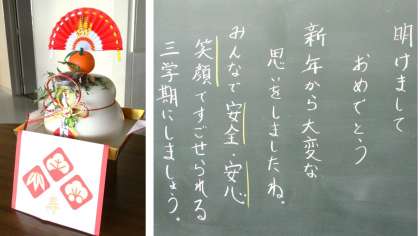 明けまして
おめでとう
新年から大変な
思いをしましたね。
みんなで安全・安心
笑顔ですごせられる
三学期にしましょう。